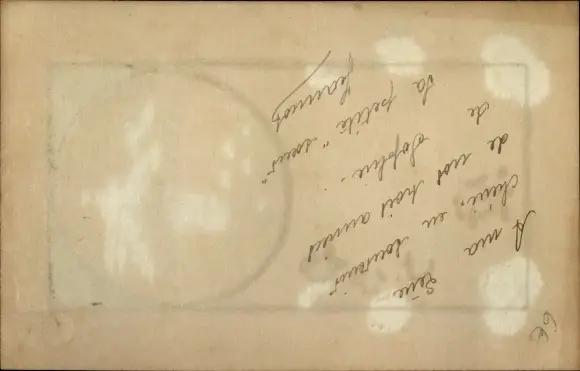 A ma
chérie, en souvenir
de nos trois années
de Sophie.
Sa petite "soeur"
Jeannot